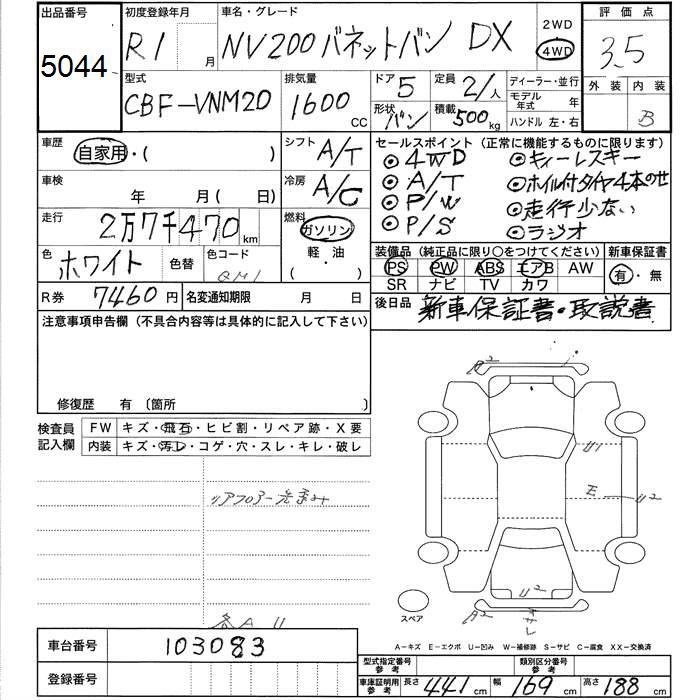 出品番号 5044
初度登録年月 R1 月
車名・グレード NV200 バネットバン DX
2WD
4WD
評価点 3.5
外装 内装
B
型式 CBF-VNM20
排気量 1600 CC
ドア 5
定員 2/人
形状 バン
積載 500kg
ディーラー・並行
モデル年式 年
ハンドル 左・右
車歴 自家用・( )
シフト A/T
車検 年 月( 日)
冷房 A/C
走行 2万7千470km
燃料 ガソリン
軽・油
( )
色 ホワイト 色替 色コード QM1
R券 7460円 名変通知期限 月 日
セールスポイント(正常に機能するものに限ります)
◎4WD ◎キィーレスキー
◎A/T ◎ホイル付タイヤ4本のせ
◎P/W ◎走行少ない
◎P/S ◎ラジオ
装備品(純正品に限り○をつけてください) 新車保証書
PS PW ABS エアB AW 有・無
SR ナビ TV カワ
後日品 新車保証書・取説書
注意事項申告欄(不具合内容等は具体的に記入して下さい)
修復歴 有〔箇所 〕
検査員記入欄
FW キズ・飛石・ヒビ割・リペア跡・X要
内装 キズ・汚レ・コゲ・穴・スレ・キレ・破レ
リアフロアー
各A U
A2
U1
E U2
U2
A2
スペア
A-キズ E-エクボ U-凹み W-補修跡 S-サビ C-腐食 XX-交換済
車台番号 103083
登録番号
型式指定番号参考
類別区分番号参考
車庫証明用参考 長さ 441cm 幅 169cm 高さ 188cm